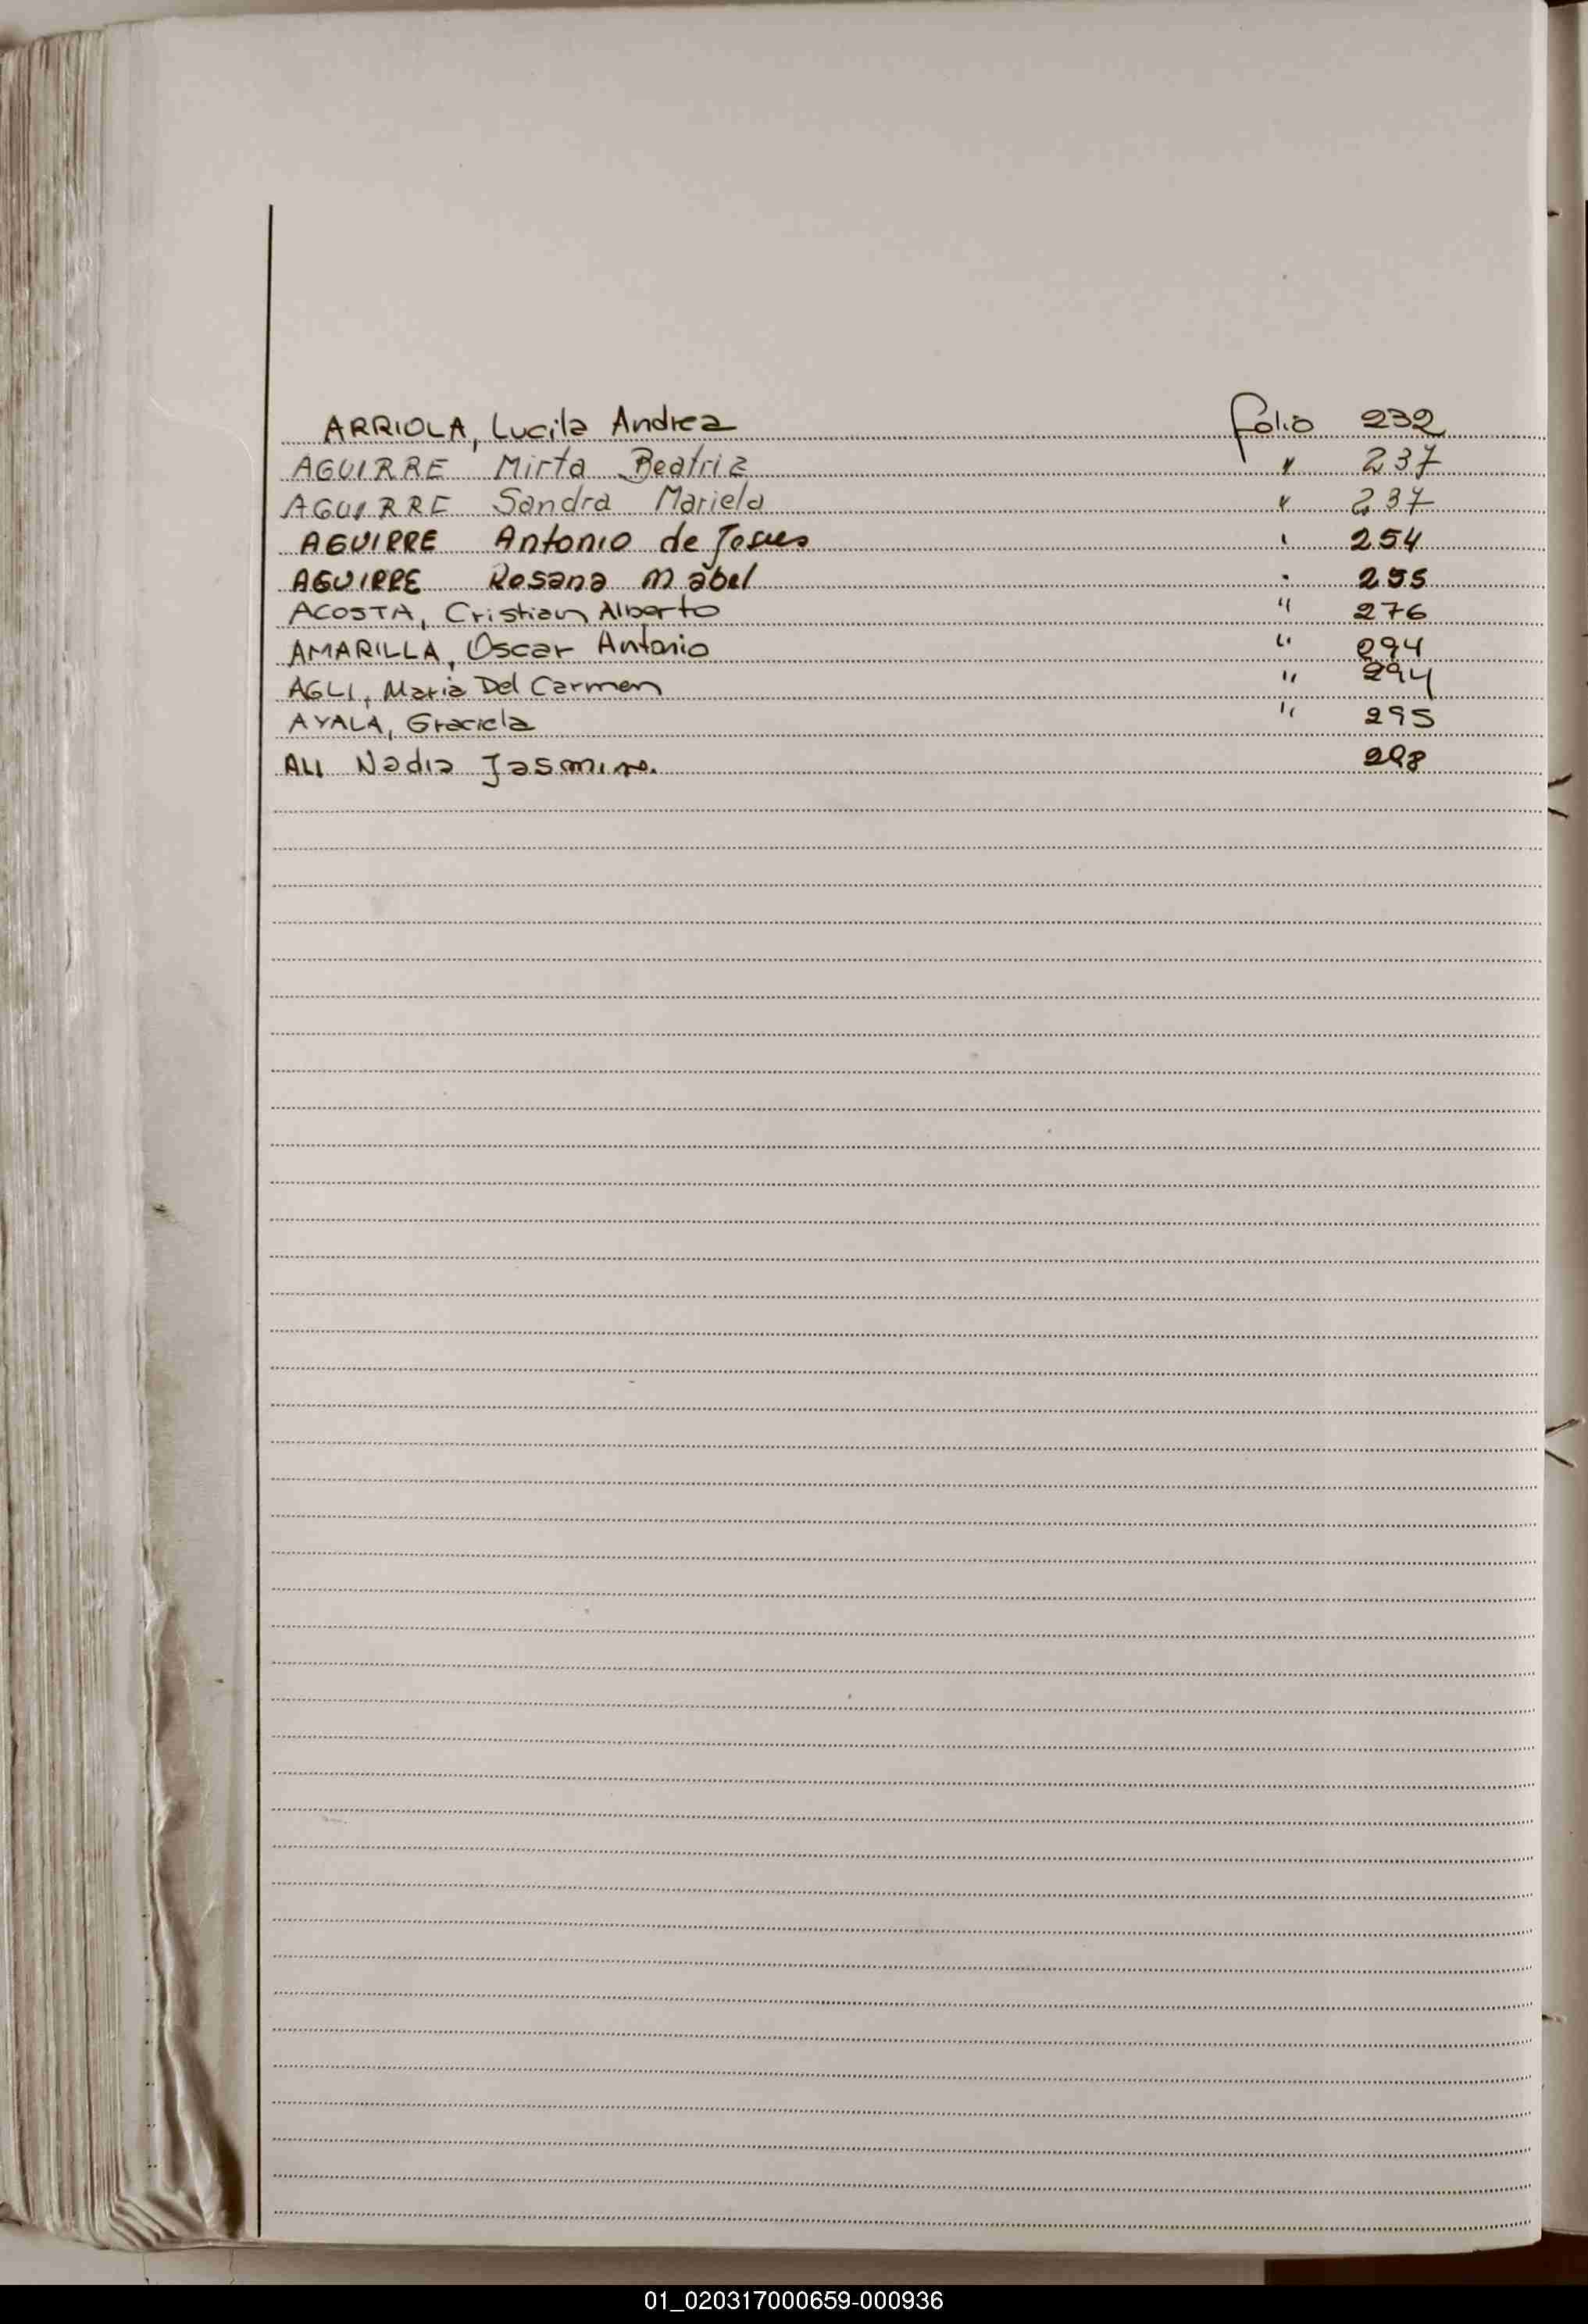 ARRIOLA, Lucila Andrea folio 232
AGUIRRE Mirta Beatriz " 237
AGUIRRE Sandra Mariela " 237
AGUIRRE Antonio de Jesus " 254
AGUIRRE Rosana Mabel " 255
ACOSTA, Cristian Alberto " 276
AMARILLA, Oscar Antonio " 294
AGLI, Maria Del Carmen " 294
AYALA, Graciela " 295
ALI Nadia Jasmin. 298
01_020317000659-000936